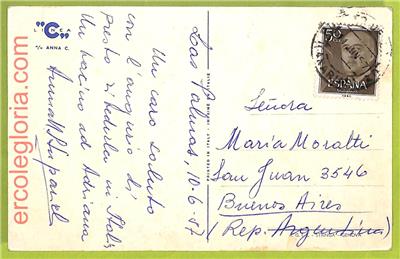 LINEA
"C"
T/n ANNA C.
Las Palmas, 10-6-57
Un caro saluto
con l'augurio di
presto rivederla in Italia
Un bacino ad Adriana
50
ESPAÑA
Señora
Maria Moratti
San Juan 3546
Buenos Aires
(Rep. Argentina)
ercolegloria.com